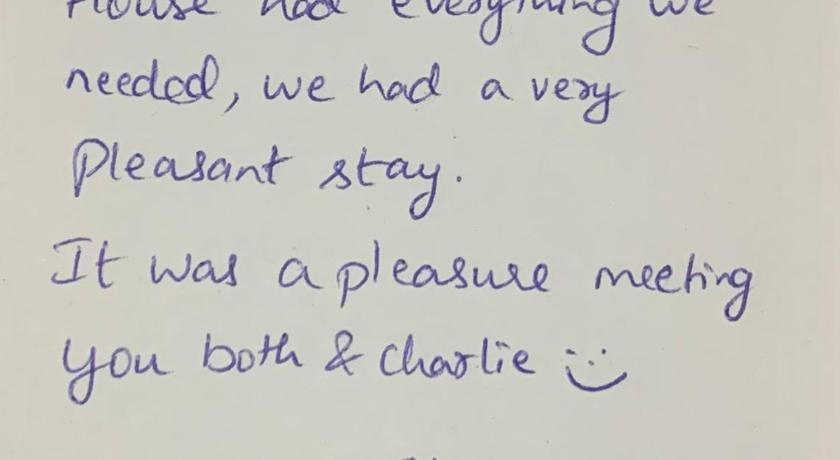 House had everything we
needed, we had a very
Pleasant stay.
It was a pleasure meeting
you both & Charlie :)